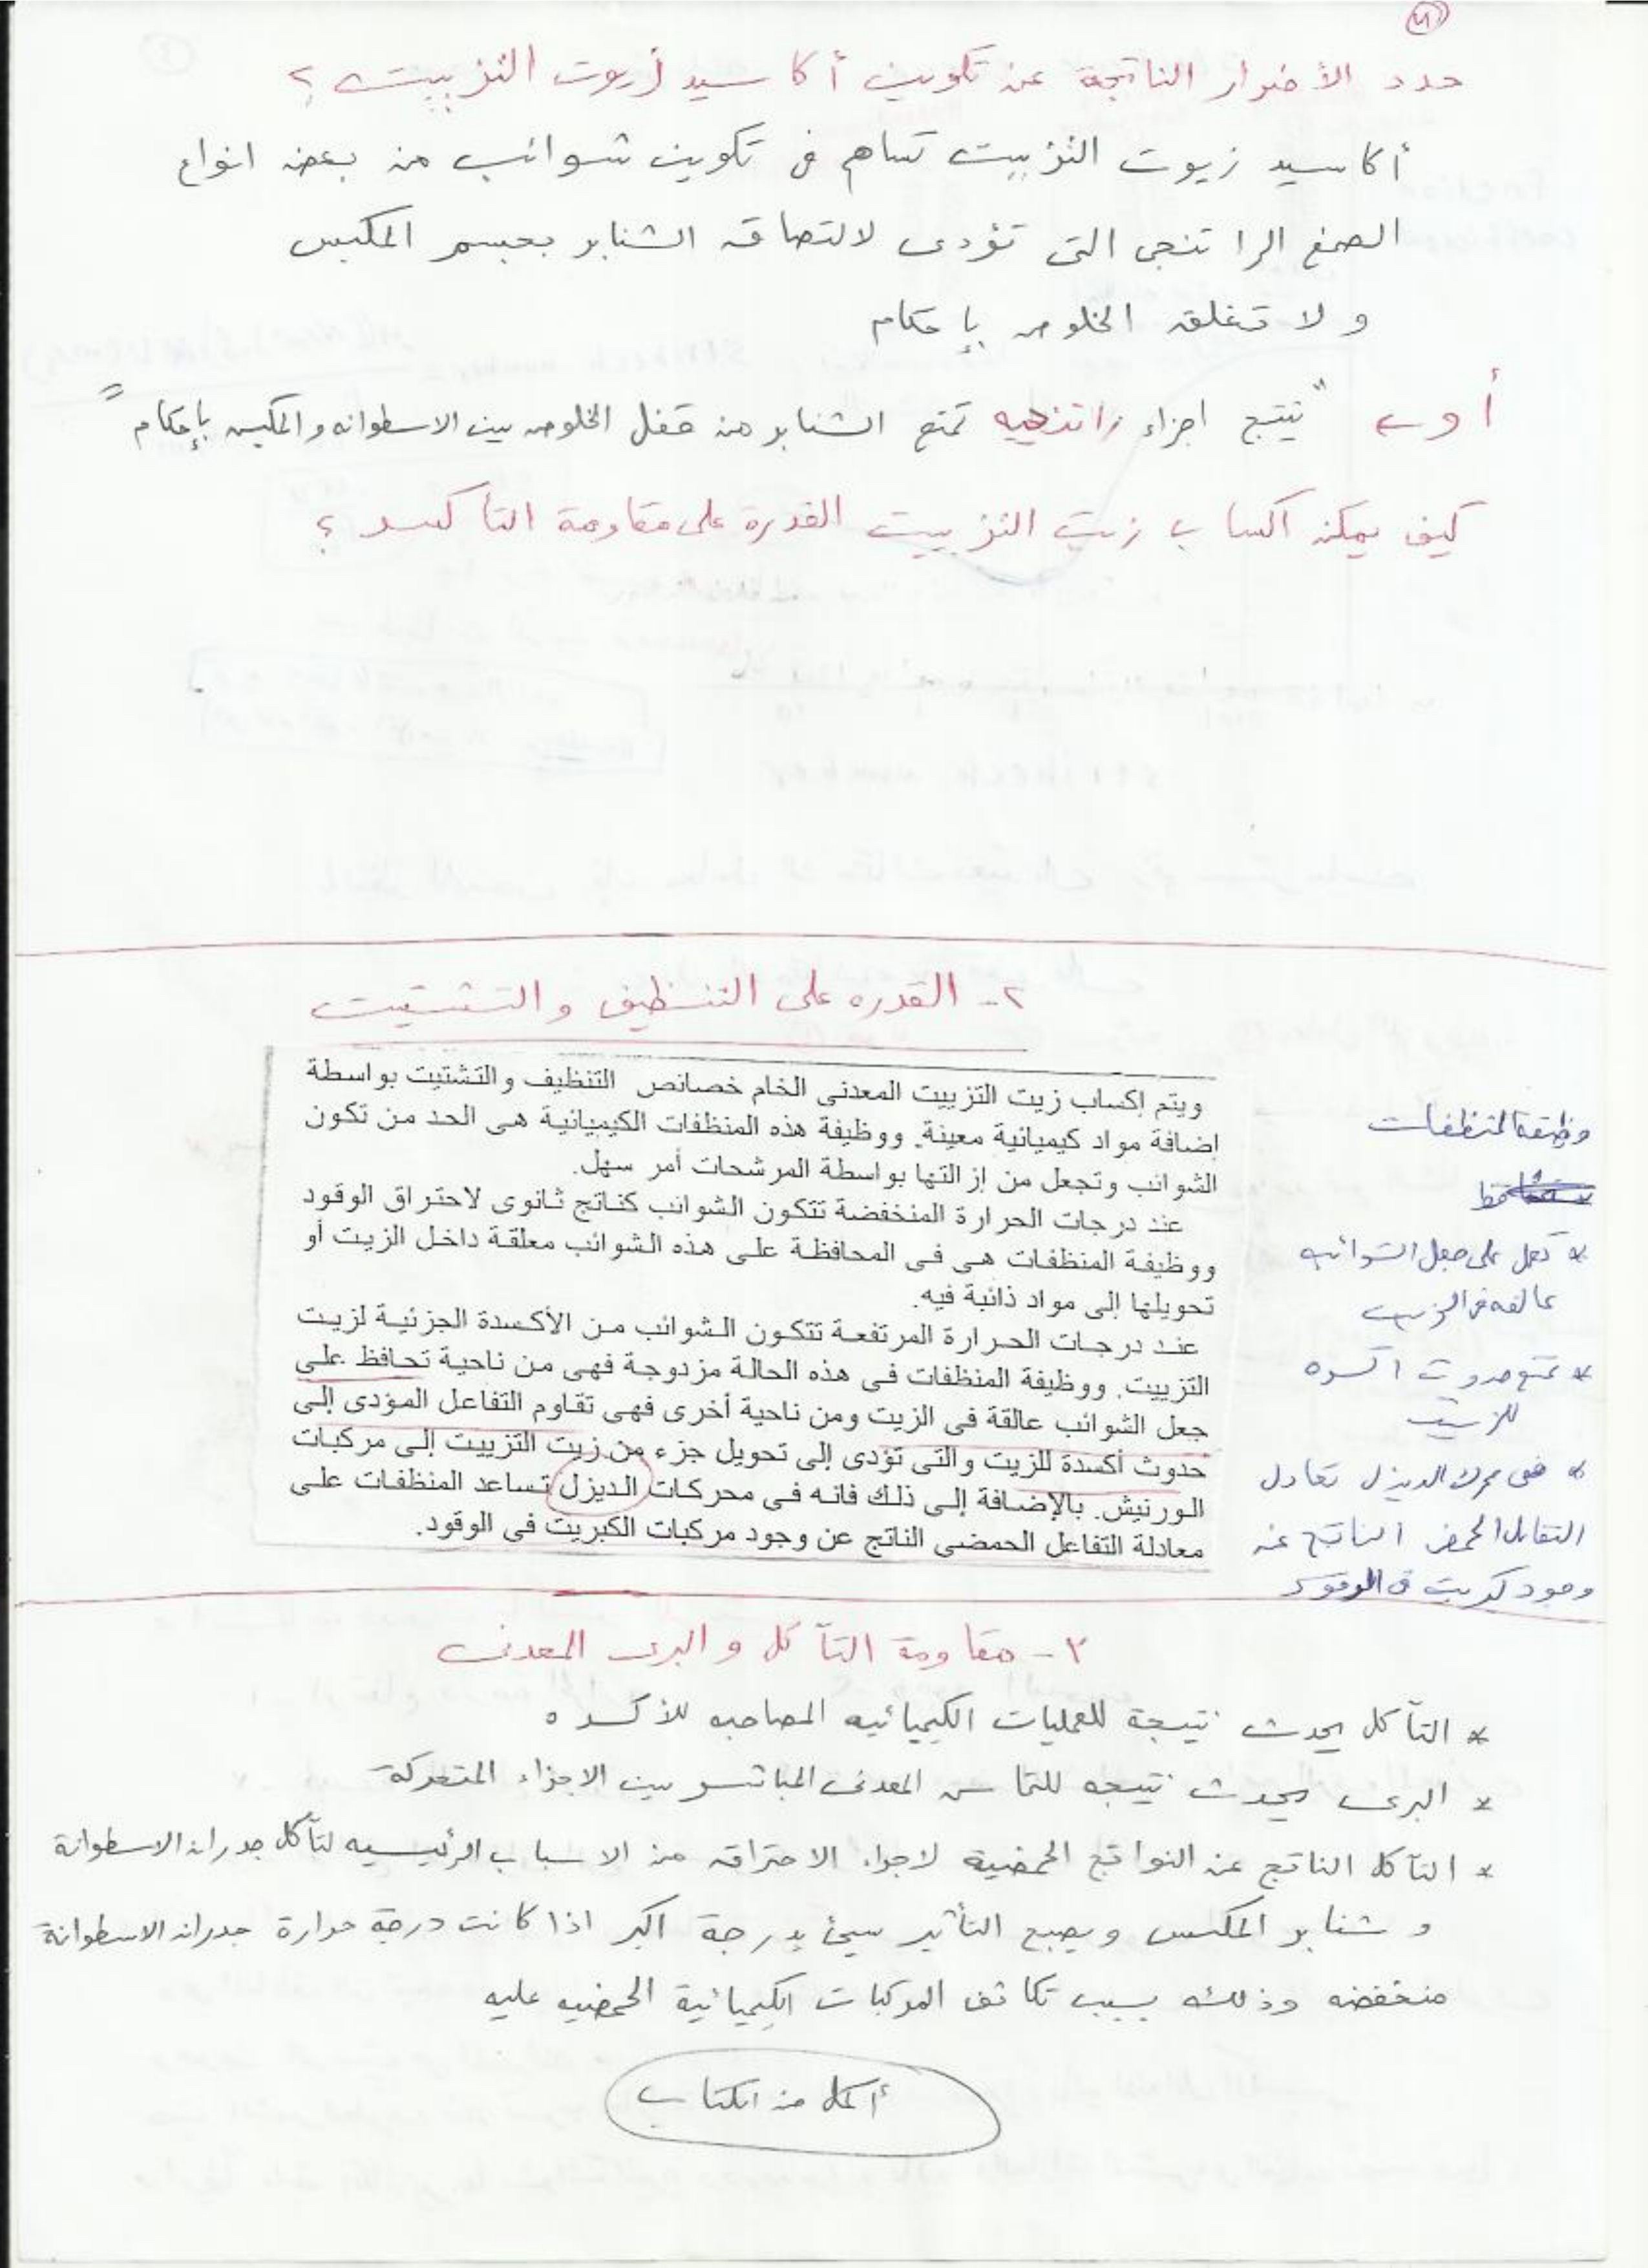 حدد الأضرار الناتجة عن تكوين أكاسيد زيوت التزييت ؟
أكاسيد زيوت التزييت تساهم فى تكوين شوائب من بعض انواع
الصمغ الراتنجى التى تؤدى لالتصاق الشنابر بجسم المكبس
ولا تغلق الخلوص بإحكام
أو "ينتج اجزاء راتنجيه تمنع الشنابر من قفل الخلوص بين الاسطوانه والمكبس بإحكام"
كيف يمكن اكساب زيت التزييت القدرة على مقاومة التأكسد ؟
٢- القدره على التنظيف والتشتيت
ويتم إكساب زيت التزييت المعدنى الخام خصائص التنظيف والتشتيت بواسطة
إضافة مواد كيميائية معينة. ووظيفة هذه المنظفات الكيميائية هى الحد من تكون
الشوائب وتجعل من إزالتها بواسطة المرشحات أمر سهل.
عند درجات الحرارة المنخفضة تتكون الشوائب كناتج ثانوى لاحتراق الوقود
ووظيفة المنظفات هى فى المحافظة على هذه الشوائب معلقة داخل الزيت أو
تحويلها إلى مواد ذائبة فيه.
عند درجات الحرارة المرتفعة تتكون الشوائب من الأكسدة الجزئية لزيت
التزييت. ووظيفة المنظفات فى هذه الحالة مزدوجة فهى من ناحية تحافظ على
جعل الشوائب عالقة فى الزيت ومن ناحية أخرى فهى تقاوم التفاعل المؤدى إلى
حدوث أكسدة للزيت والتى تؤدى إلى تحويل جزء من زيت التزييت إلى مركبات
الورنيش. بالإضافة إلى ذلك فانه فى محركات الديزل تساعد المنظفات على
معادلة التفاعل الحمضى الناتج عن وجود مركبات الكبريت فى الوقود.
وظيفة المنظفات
* تعمل على جعل الشوائب
عالقه فى الزيت
* تمنع حدوث اكسده
للزيت
* فى محرك الديزل تعادل
التفاعل الحمضى الناتج عن
وجود كبريت فى الوقود
٣- مقاومة التآكل والبرى المعدنى
* التآكل يحدث نتيجة للعمليات الكيميائيه المصاحبه للأكسده
* البرى يحدث نتيجه للتماس المعدنى المباشر بين الاجزاء المتحركة
* التآكل الناتج عن النواتج الحمضية لاجراء الاحتراق من الاسباب الرئيسيه لتآكل جدران الاسطوانة
و شنابر المكبس ويصبح التأثير سيئ بدرجة اكبر اذا كانت درجة حرارة جدران الاسطوانة
منخفضه وذلك بسبب تكاثف المركبات الكيميائية الحمضيه عليه
أكمل من الكتاب